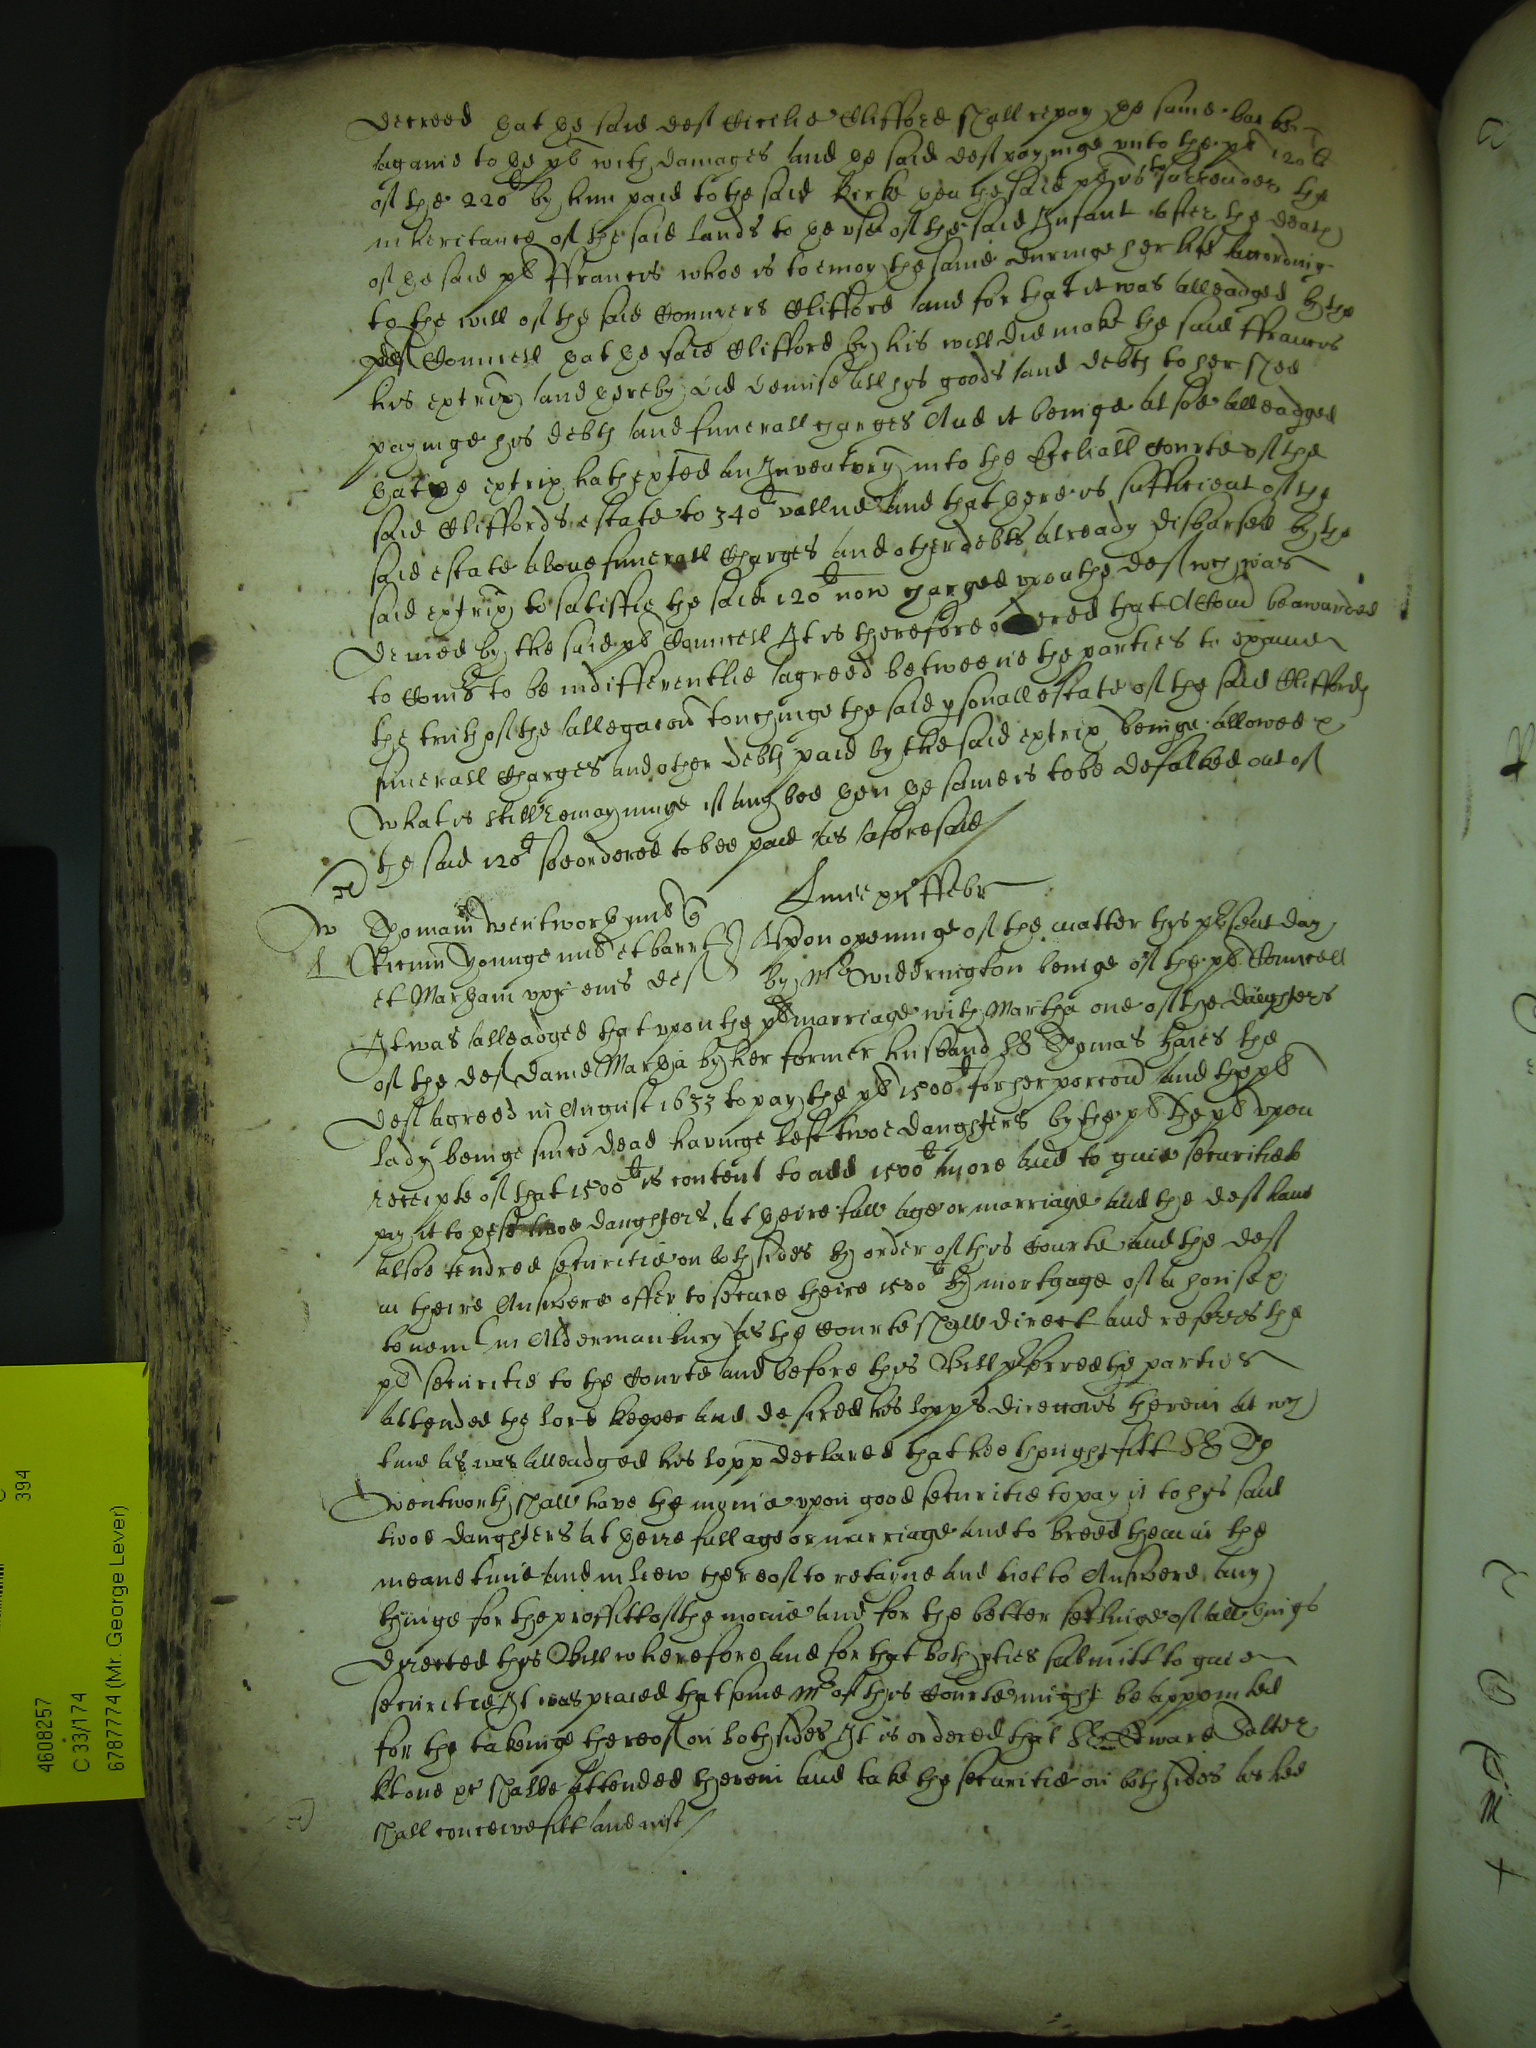 decreed that the said deft Cicelie Clifford shall repay the same backe
againe to the pl with damages and the said deft payinge vnto the pl 120li
of the 220li by him paid to the said Kerke then the said pl is to surrender the
inheritance of the said lands to the vse of the said Infant after the death
of the said pl Ffrancis whoe is to enioy the same duringe her life accordinge
to the will of the said Conniers Clifford and for that it was alleadged by the
deft Councell that the said Clifford by his will did make the said ffrancis
his extrix and thereby did demise all his goods and debts to her shee
payinge his debts and funerall charges And it beinge alsoe alleadged
that the extrix hath exted an Inventory into the Ecliall Courte of the
said Cliffords estate to 340li vallue and that there is sufficient of the
said estate aboue funerall Charges and other debts already disbursed by the
said extrix to satisfie the said 120li now charged vpon the deft wch was
denied by the said pl Councell It is therefore ordered that A Comicon be awarded
to Comrs to be indifferentlie agreed betweene the parties to examine
the truth of the allegacon touchinge the said psonall estate of the said Cliffords
funerall Charges and other debts paid by the said extrix beinge allowed &
what is still remayninge if any bee then the same is to be defalked out of
the said 120li soe ordered to bee paid as aforesaid
Lune ffebr
W Thomam Wentworth mil
Ricum Younge mil et barrt Vpon openinge of the matter this present day
et Martham vxor eius def by Mr Widdrington beinge of the pl Councell
It was alleadged that vpon the pl marriage with Martha one of the daughters
of the deft dame Martha by her former husband Sr Thomas Haies the
deft agreed in August 1633 to pay the pl 1500li for her porcon and the pl
lady beinge since dead havinge left twoe daughters by the pl the pl vpon
receipte of that 1500li is content to add 1500li more and to giue securitie to
pay it to these twoe daughters at theire full age or marriage and the deft haue
alsoe tendred securitie on both sides by order of this Courte and the deft
in theire Answere offer to secure theire 1500li by mortgage of a house &
tenemt in Aldermanbury as the Courte shall direct and referrs the
pl securitie to the Courte and before this Bill pferred the parties
attended the lord keeper and desired his lopps direccons herein at wch
time as was alleadged his lopp declared that hee thought fitt Sr Tho
Wentworth shall have the monie vpon good securitie to pay it to his said
twoe daughters at theire full age or marriage and to breed them in the
meane time and in liew thereof to retayne and not to Answere any
thinge for the proffitt of the monie and for the better setlinge of all things
directed this Bill wherefore and for that both pties submitt to giue
securitie It was praied that some Mr of this Courte might be appointed
for the takeinge thereof on both sides It is ordered that Sr Edward Salter
kt one &c shalbe attended herein and take the securitie on both sides as hee
shall conceive fitt and iust
394
4608257
C 33/174
6787774 (Mr. George Lever)